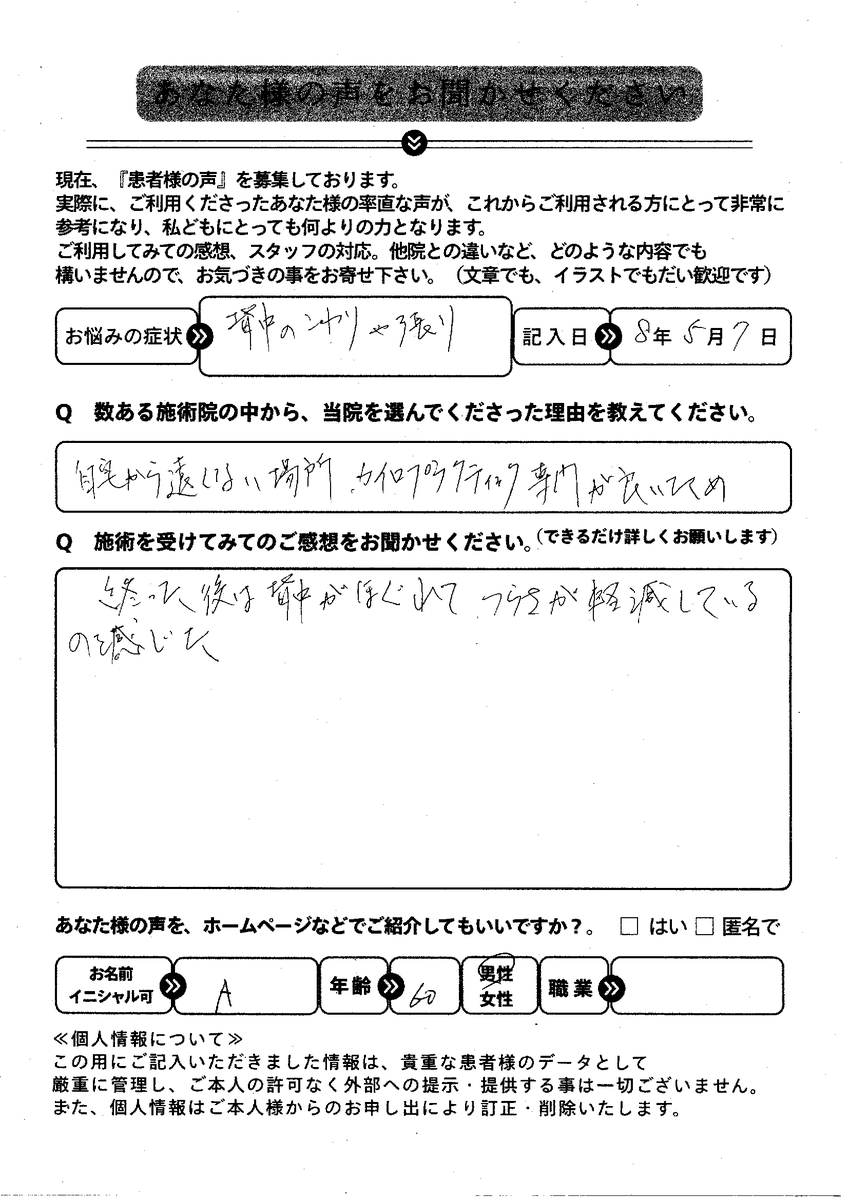 あなた様の声をお聞かせください
現在、『患者様の声』を募集しております。
実際に、ご利用くださったあなた様の率直な声が、これからご利用される方にとって非常に
参考になり、私どもにとっても何よりの力となります。
ご利用してみての感想、スタッフの対応。他院との違いなど、どのような内容でも
構いませんので、お気づきの事をお寄せ下さい。（文章でも、イラストでもだい歓迎です）
お悩みの症状 背中のコリや張り 記入日 8年 5月 7日
Q 数ある施術院の中から、当院を選んでくださった理由を教えてください。
自宅から遠くない場所、カイロプラクティック専門が良いため
Q 施術を受けてみてのご感想をお聞かせください。（できるだけ詳しくお願いします）
終った後は背中がほぐれて、つらさが軽減している
のを感じた
あなた様の声を、ホームページなどでご紹介してもいいですか？。 □ はい □ 匿名で
お名前 イニシャル可 A 年齢 60 男性 女性 職業
≪個人情報について≫
この用にご記入いただきました情報は、貴重な患者様のデータとして
厳重に管理し、ご本人の許可なく外部への提示・提供する事は一切ございません。
また、個人情報はご本人様からのお申し出により訂正・削除いたします。